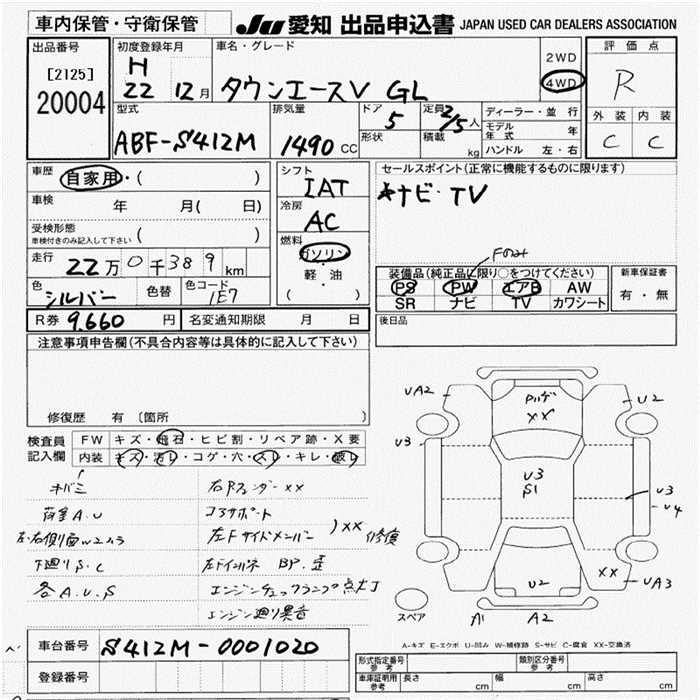 車内保管・守衛保管
JU 愛知 出品申込書 JAPAN USED CAR DEALERS ASSOCIATION
出品番号
[2125]
20004
初度登録年月
H
22 12月
車名・グレード
タウンエースV GL
2WD
4WD
評価点
R
外装 内装
C C
型式
ABF-S412M
排気量
1490 CC
ドア
5
形状
定員
2/5人
積載
kg
ディーラー・並行
モデル年式 年
ハンドル 左・右
車歴 自家用・( )
車検 年 月( 日)
受検形態
車検付きのみ記入して下さい ( )
走行 22万0千389km
色 シルバー 色替 色コード 1E7
R券 9,660 円 名変通知期限 月 日
シフト
IAT
冷房
AC
燃料
ガソリン
・
軽・油
( )
セールスポイント(正常に機能するものに限ります)
ナビ・TV
Fのみ
装備品(純正品に限り○をつけてください)
PS PW エアB AW
SR ナビ TV カワシート
新車保証書
有・無
後日品
注意事項申告欄(不具合内容等は具体的に記入して下さい)
修復歴 有〔箇所 〕
検査員記入欄
FW キズ・飛石・ヒビ割・リペア跡・X要
内装 キズ・汚レ・コゲ・穴・スレ・キレ・破レ
キバミ
荷室A.U
左右側面W2,3
下廻りS.C
各A.U.S
右Fフェンダーxx
コアサポート
左Fサイドメンバー )xx 修復
左ドインパネ BP.歪
エンジンチェックランプ点灯
エンジン廻り異音
UA2
U3
Rハゲ
XX
U2
U3
S1
U3
U4
XX
UA3
U2
A1 A2
スペア
A-キズ E-エクボ U-凹み W-補修跡 S-サビ C-腐食 XX-交換済
車台番号 S412M-0001020
登録番号
形式指定番号
参考
類別区分番号
参考
車庫証明用
参考
長さ cm 幅 cm 高さ cm